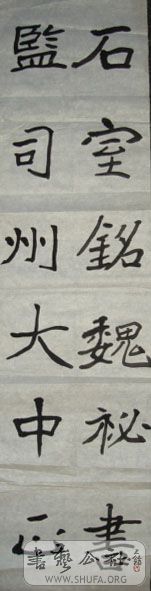 石室銘魏祕書
監司州大中正
書藝公社
WWW.SHUFA.ORG